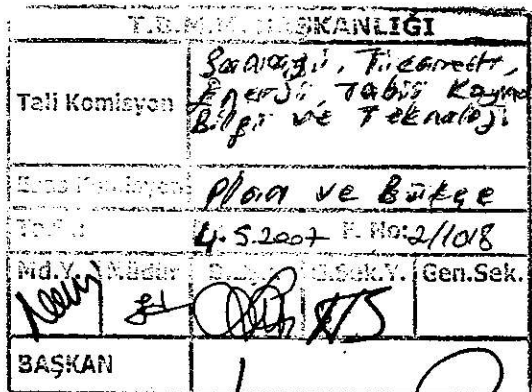 T.B.M.M. BAŞKANLIĞI
Tali Komisyon
Sanayi, Ticaret,
Enerji, Tabii Kayna
Bilgi ve Teknoloji
Esas Komisyon
Plan ve Bütçe
4.5.2007 E. No: 2/1018
Md.Y. Müdür G.Sek.Y. Gen.Sek.
BAŞKAN